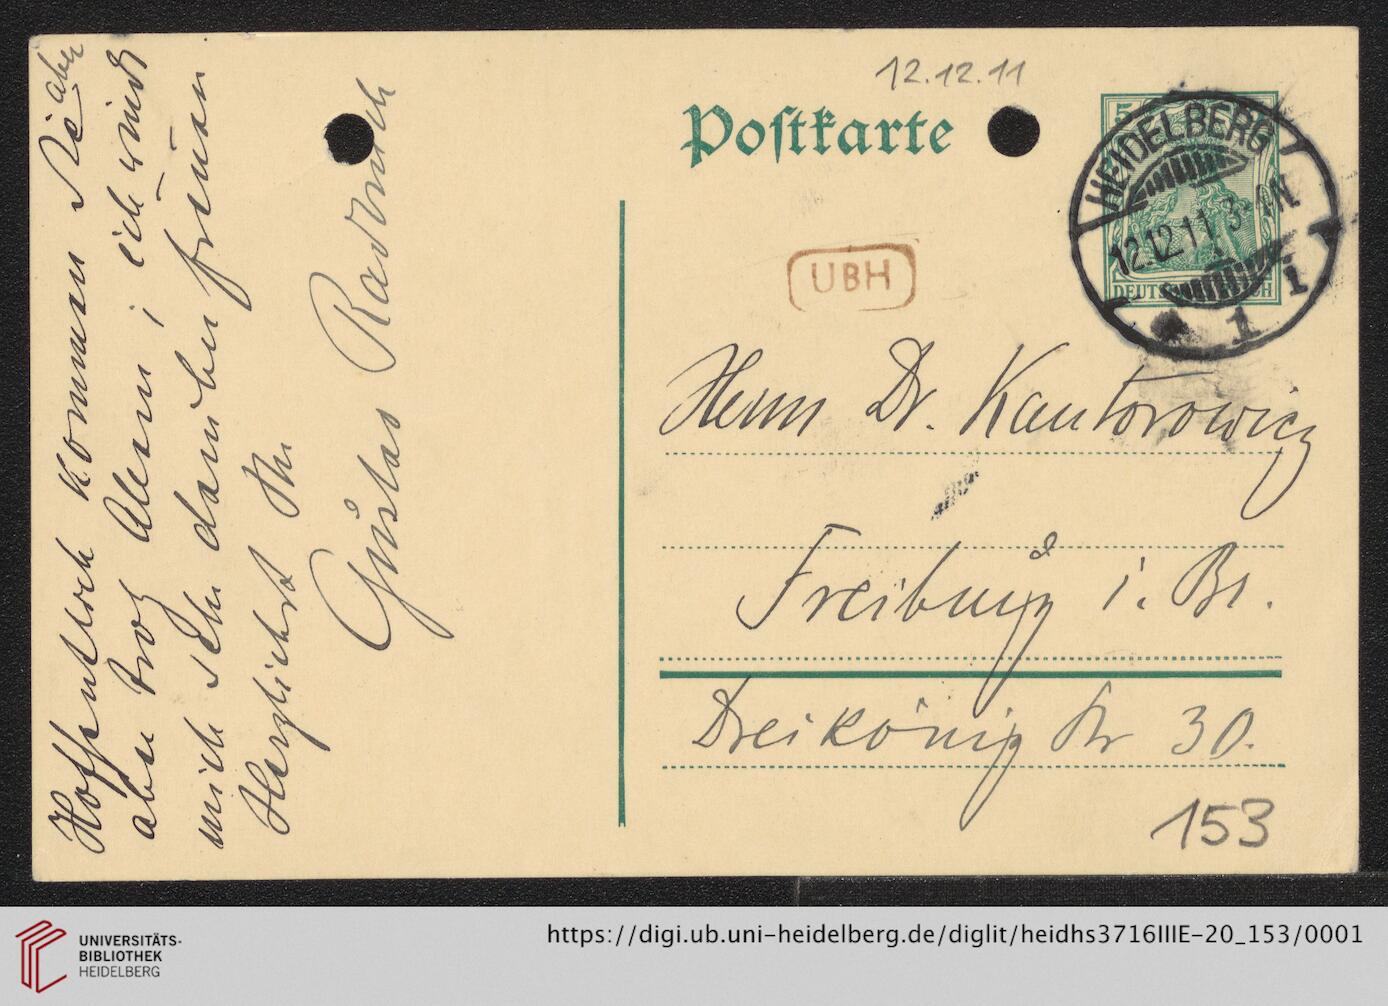 12.12.11
Postkarte
HEIDELBERG
12.12.11 3-4N
1 i
DEUTSCHES REICH
UBH
Herrn Dr. Kantorowicz
Freiburg i. Br.
Dreikönig Str 30.
153
Hoffentlich kommen Sie aber
aber trotz Allem; ich würde
mich sehr darüber freuen
Herzlichst Ihr
Gustav Radbruch
UNIVERSITÄTS-
BIBLIOTHEK
HEIDELBERG
https://digi.ub.uni-heidelberg.de/diglit/heidhs3716IIIE-20_153/0001